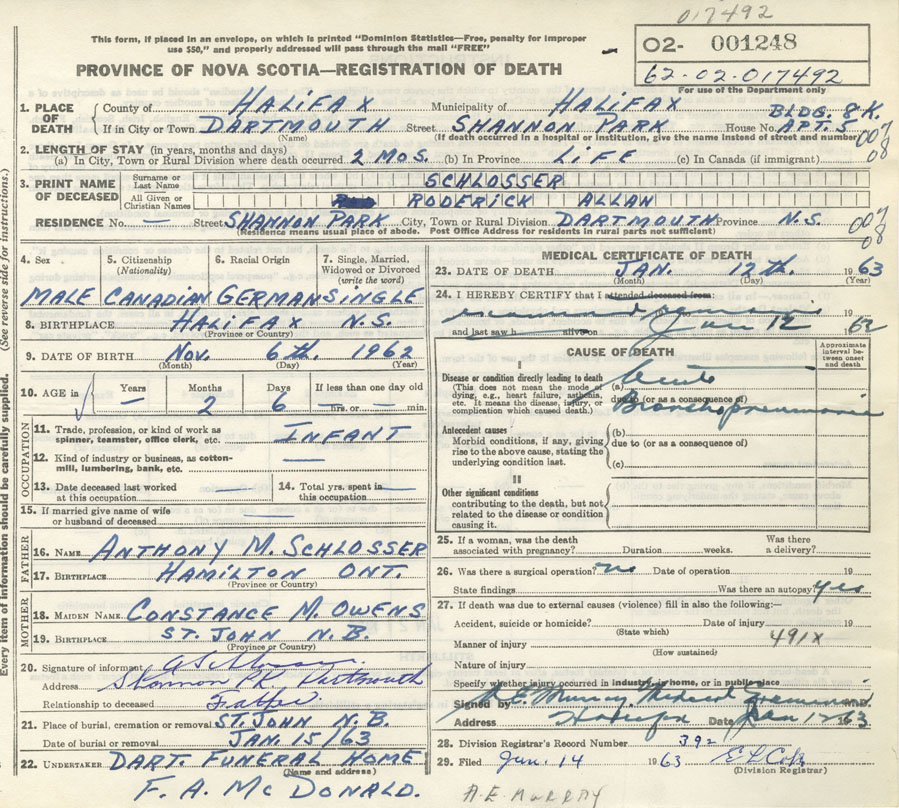 017492
This form, if placed in an envelope, on which is printed "Dominion Statistics—Free, penalty for improper
use $50," and properly addressed will pass through the mail "FREE"
PROVINCE OF NOVA SCOTIA—REGISTRATION OF DEATH
02- 001248
62-02-017492
For use of the Department only
1. PLACE OF DEATH
County of HALIFAX Municipality of HALIFAX BLDG. 8K.
If in City or Town DARTMOUTH Street SHANNON PARK House No. APT. 5
(Name) (If death occurred in a hospital or institution, give the name instead of street and number)
007
08
2. LENGTH OF STAY (in years, months and days)
(a) In City, Town or Rural Division where death occurred 2 MOS. (b) In Province LIFE (c) In Canada (if immigrant)
3. PRINT NAME OF DECEASED
Surname or Last Name SCHLOSSER
All Given or Christian Names RODERICK ALLAN
RESIDENCE No. — Street SHANNON PARK City, Town or Rural Division DARTMOUTH Province N.S.
(Residence means usual place of abode. Post Office Address for residents in rural parts not sufficient)
007
08
4. Sex 5. Citizenship (Nationality) 6. Racial Origin 7. Single, Married, Widowed or Divorced (write the word)
MALE CANADIAN GERMAN SINGLE
8. BIRTHPLACE HALIFAX N.S.
(Province or Country)
9. DATE OF BIRTH Nov. 6th. 1962
(Month) (Day) (Year)
10. AGE in Years Months Days If less than one day old
— 2 6 hrs. or — min.
OCCUPATION
11. Trade, profession, or kind of work as spinner, teamster, office clerk, etc. INFANT
12. Kind of industry or business, as cotton-mill, lumbering, bank, etc. —
13. Date deceased last worked at this occupation — 14. Total yrs. spent in this occupation —
15. If married give name of wife or husband of deceased —
FATHER
16. NAME ANTHONY M. SCHLOSSER
17. BIRTHPLACE HAMILTON ONT.
(Province or Country)
MOTHER
18. MAIDEN NAME CONSTANCE M. OWENS
19. BIRTHPLACE ST. JOHN N.B.
(Province or Country)
20. Signature of informant A Schlosser
Address Shannon PK. Dartmouth
Relationship to deceased Father
21. Place of burial, cremation or removal ST. JOHN N.B
Date of burial or removal JAN. 15/63
22. UNDERTAKER DART. FUNERAL HOME
(Name and address)
F. A. MCDONALD.
MEDICAL CERTIFICATE OF DEATH
23. DATE OF DEATH JAN. 12th. 1963
(Month) (Day) (Year)
24. I HEREBY CERTIFY that I attended deceased from:
examined 19
and last saw h alive on Jan 12 62
CAUSE OF DEATH
Approximate interval between onset and death
I
Disease or condition directly leading to death
(This does not mean the mode of dying, e.g., heart failure, asthenia, etc. It means the disease, injury, or complication which caused death.)
(a) Acute
due to (or as a consequence of)
Bronchopneumonia
Antecedent causes
Morbid conditions, if any, giving rise to the above cause, stating the underlying condition last.
(b)
due to (or as a consequence of)
(c)
II
Other significant conditions
contributing to the death, but not related to the disease or condition causing it.
25. If a woman, was the death associated with pregnancy? Duration weeks. Was there a delivery?
26. Was there a surgical operation? no Date of operation 19
State findings Was there an autopsy? yes
27. If death was due to external causes (violence) fill in also the following:—
Accident, suicide or homicide? Date of injury 19
(State which)
Manner of injury 491X
(How sustained)
Nature of injury
Specify whether injury occurred in industry, in home, or in public place
Signed by A. E. Murray Medical Examiner M.D.
Address Halifax Date Jan 12 1963
28. Division Registrar's Record Number 392
29. Filed Jan. 14 1963
(Division Registrar)
A.E. MURRAY
Every item of information should be carefully supplied. (See reverse side for instructions.)